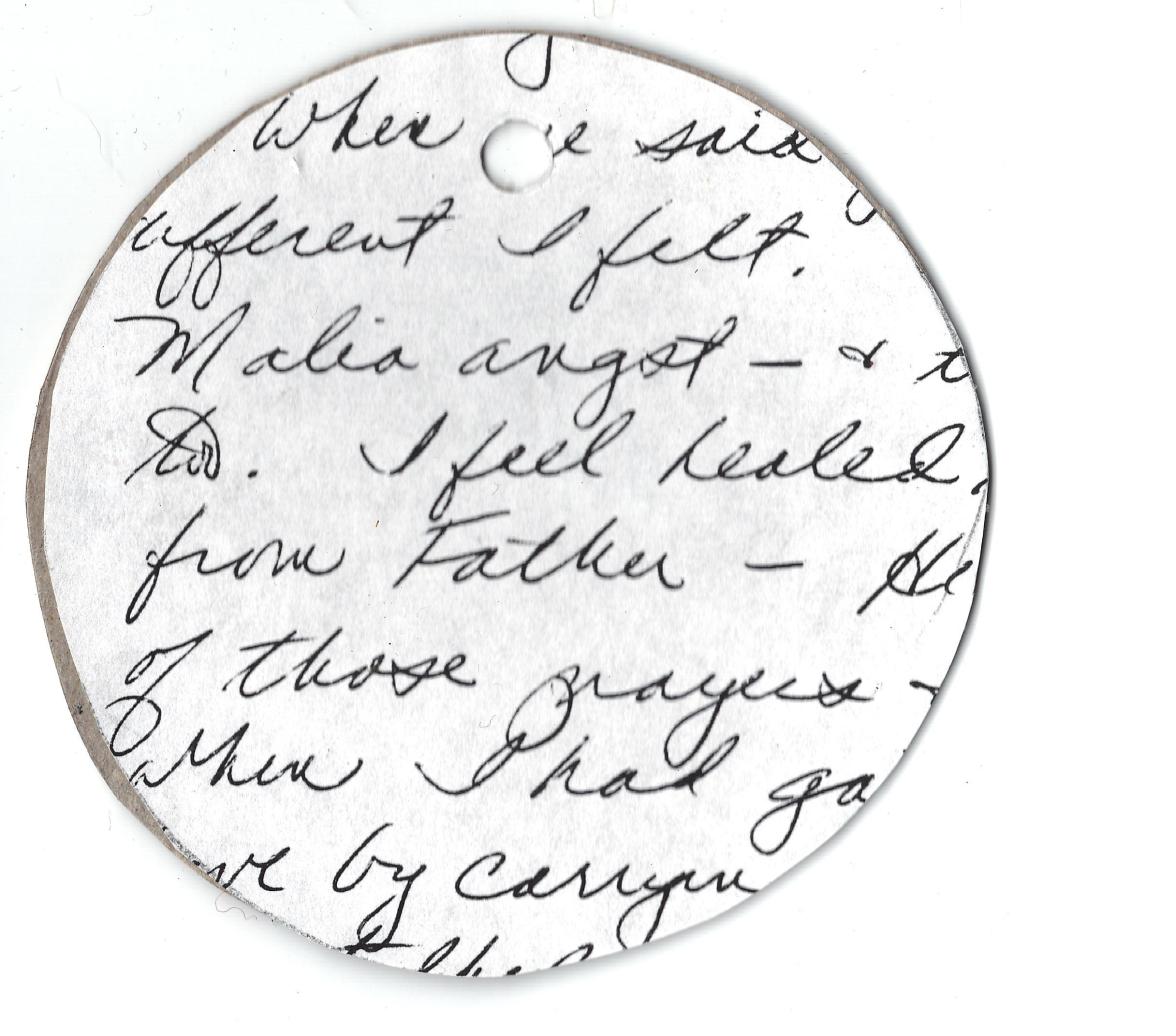 When said
different I felt.
Malia angst - &
I feel healed.
from Father - He
of those prayers -
when I had
by